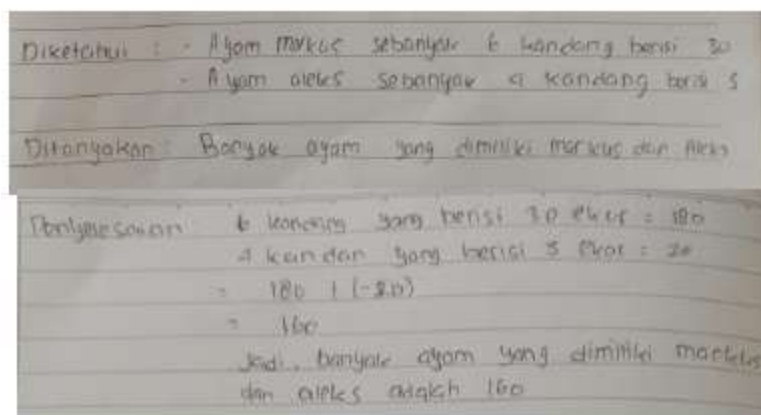 Diketahui : - Ayam markus sebanyak 6 kandang berisi 30
- Ayam aleks sebanyak 4 kandang berisi 5
Ditanyakan : Banyak ayam yang dimiliki markus dan Aleks
Penyelesaian 6 kandang yang berisi 30 ekor = 180
4 kandan yang berisi 5 ekor = 20
= 180 + (-20)
= 160
Jadi, banyak ayam yang dimiliki markus
dan aleks adalah 160